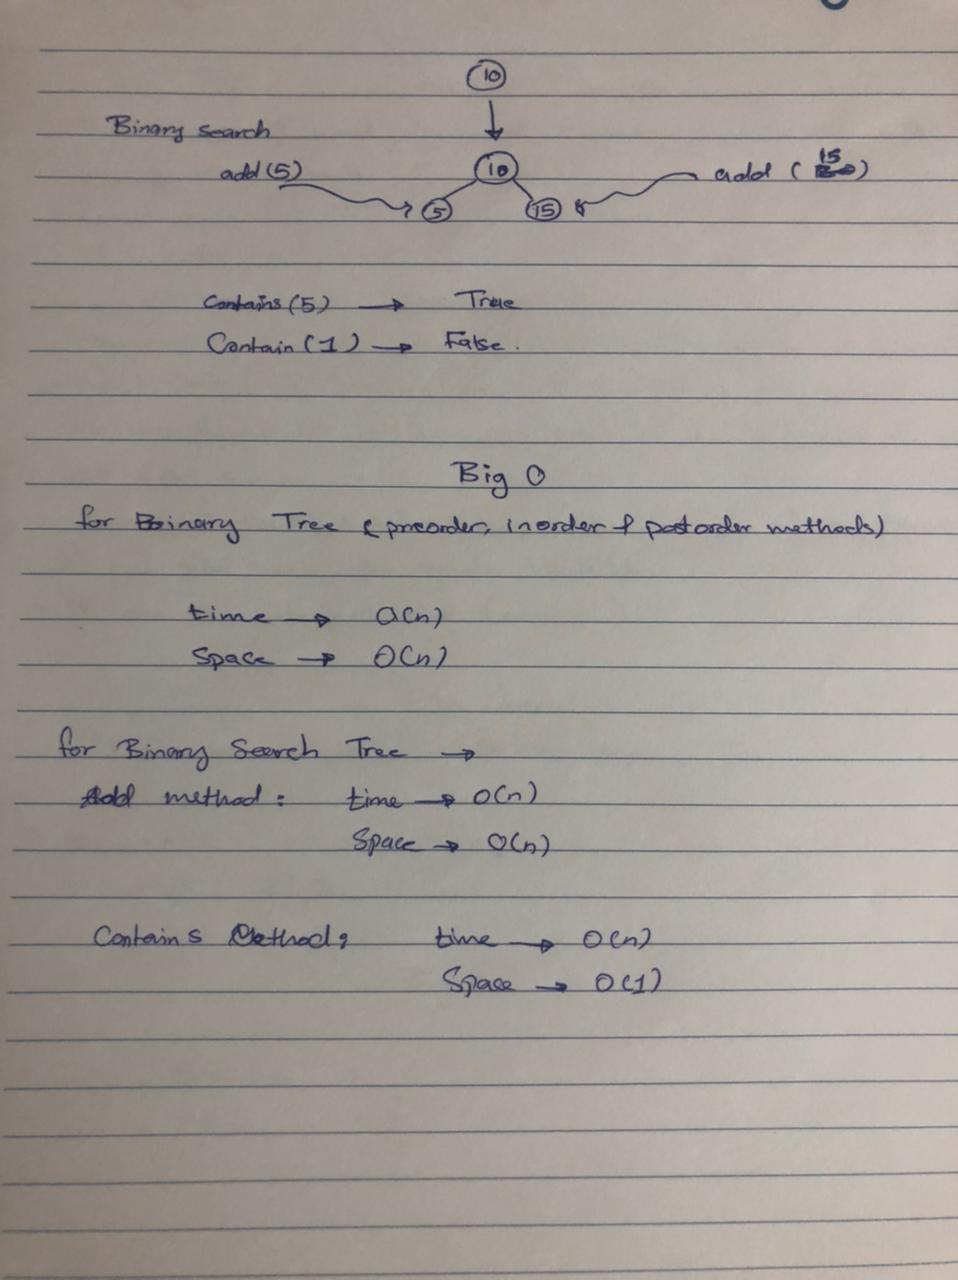 10
Binary search
add(5)
10
add (15)
5
15
Contains(5) → True
Contain(1) → False.
Big O
for Binary Tree ( preorder, inorder & postorder methods)
time → O(n)
Space → O(n)
for Binary Search Tree →
Add method: time → O(n)
Space → O(n)
Contains Method: time → O(n)
Space → O(1)